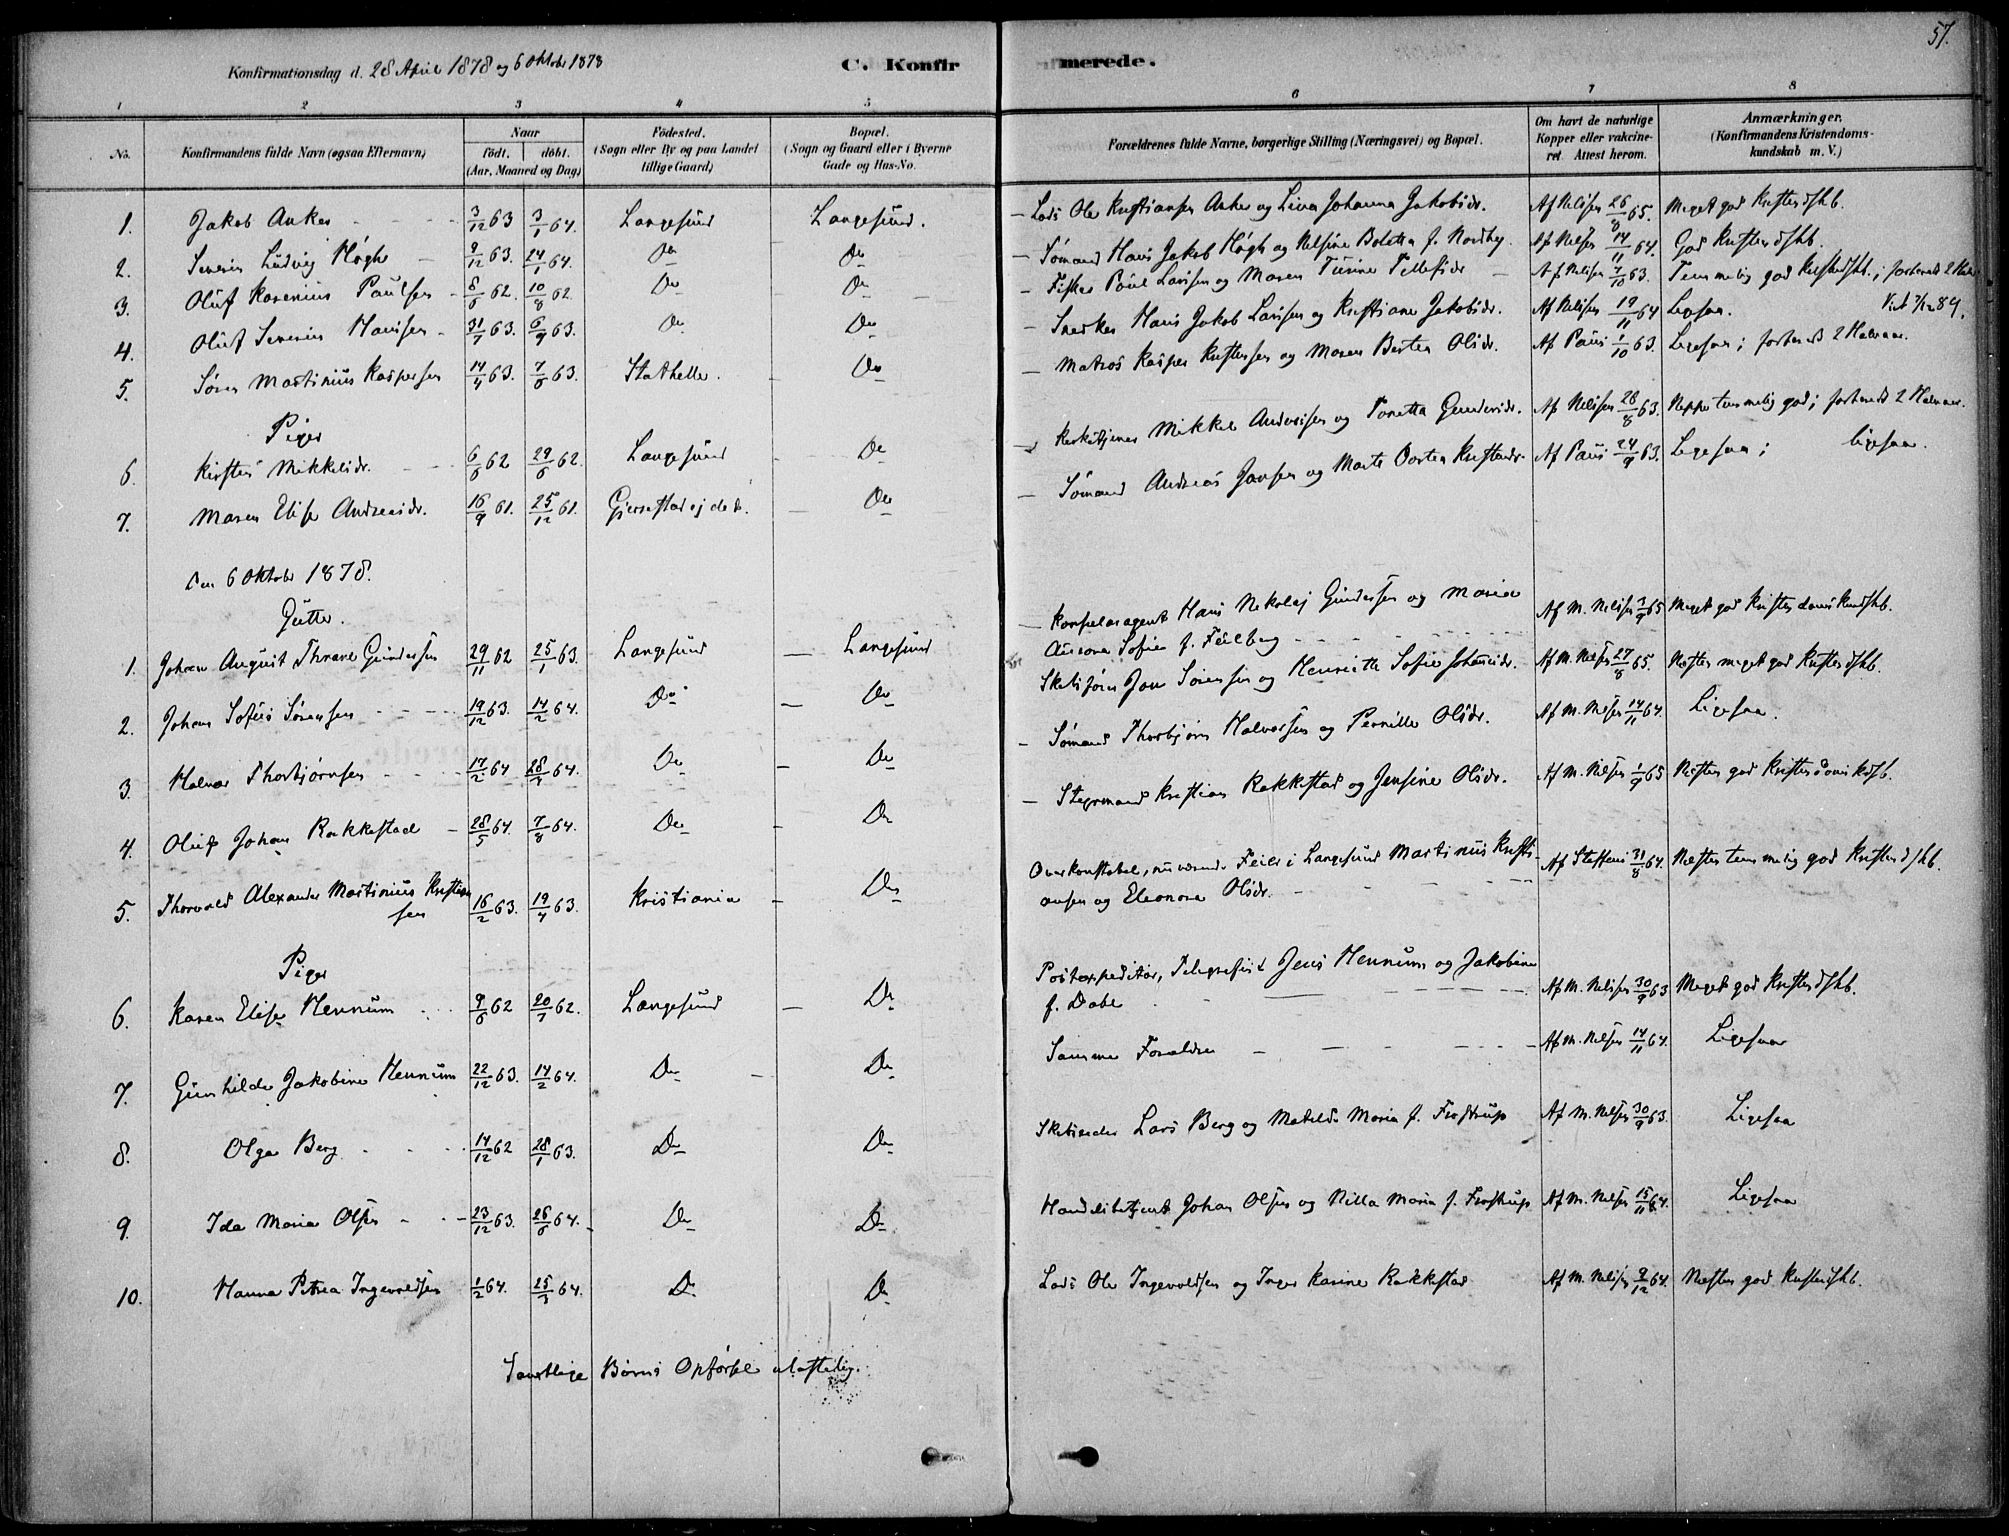 57.
Konfirmationsdag d. 28 April 1878 og 6 Oktober 1878
C. Konfirmerede.
1 2 3 4 5 6 7 8
No. Konfirmandens fulde Navn (ogsaa Efternavn) Naar födt. döbt. (Aar, Maaned og Dag) Födested. (Sogn eller By og paa Landet tillige Gaard) Bopæl. (Sogn og Gaard eller i Byerne Gade og Hus-No. Forældrenes fulde Navne, borgerlige Stilling (Næringsvei) og Bopæl. Om havt de naturlige Kopper eller vakcineret. Attest herom. Anmærkninger. (Konfirmandens Kristendomskundskab m. V.)
1. Jakob Anker 3/12 63 3/1 64. Langesund Langesund. Lods Ole Kristiansen Anker og Lina Johanna Jakobsdr. Af Nilsen 26/8 65. Meget god Kristendskb.
2. Severin Ludvig Høgh 9/12 63. 24/1 64. Do Do Sømand Hans Jakob Høgh og Nilsine Boletta f. Nordby. Af Nilsen 14/11 64. God Kristendskb.
3. Oluf Kasenius Paulsen 8/6 62. 10/8 62. Do Do Fisker Poul Larsen og Maren Tellefsdr Af Nilsen 7/10 63. Temmelig god Kristendskb.;
4. Oluf Severin Hansen 31/7 63. 6/9 63. Do Do Snedker Hans Jakob Larsen og Kristiane Jakobsdr. Af Nilsen 19/11 64 Ligesaa.
5. Søren Martinius Kaspersen 14/4 63. 7/6 63. Stathelle. Do Matros Kasper Kristensen og Maren Bertea Olsdr. Af Paus 1/10 63. Ligesaa; forbered 2 Halvaar.
Piger
6. Kirsten Mikkelsdr. 6/6 62 29/6 62. Langesund Do Kirketjener Mikkel Andersen og Tonetta Gundersdr. Af Nilsen 28/8 63. Neppe temmelig god; forbered 2 Halvaar.
7. Maren Elise Andreasdr. 16/9 61. 25/12 61. Gjerrestad Do Sømand Andreas Jansen og Marte Kristensdr. Af Paus 24/9 63. Ligesaa; ligesaa.
Den 6 Oktober 1878.
Gutter.
1. Johan August Thrane Gundersen 29/11 62 25/1 63. Langesund Langesund Hans Nikolaj Gundersen og Maria Aurora Sofie f. Feilberg Af M. Nilsen 7/9 65 Meget god Kristendomskundskb.
2. Johan Sofus Sørensen 19/12 63. 14/2 64. Do Do Skibsfører Jon Sørensen og Henriette Sofie Johansdr. Af M. Nilsen 27/8 65. Næsten meget god Kristendskb.
3. Halvor Thorbjørnsen 17/2 64 28/7 64. Do Do Sømand Thorbjørn Halvorsen og Pernille Olsdr. Af M. Nilsen 14/11 64. Ligesaa.
4. Oluf Johan Rakkestad 28/5 64. 7/8 64. Do Do Styrmand Kristian Rakkestad og Jensine Olsdr. Af M. Nilsen 1/9 65 Næsten god Kristendomskdskb.
5. Thorvald Alexander Martinius Kristiansen 16/2 63. 19/4 63. Kristiania Do Overkonstabel, nuværende Feier i Langesund Martinus Kristiansen og Eleonora Olsdr. Af Steffens 31/8 64. Næsten temmelig god Kristendskb.
Piger
6. Karen Elise Hennum 9/6 62 20/7 62. Langesund Do Postexpeditør, Telegrafist Jens Hennum og Jakobine f. Dahl Af M. Nilsen 30/9 63 Meget god Kristendskb.
7. Gunhilde Jakobine Hennum 22/12 63. 14/2 64. Do Do Samme Foraldre Af M. Nilsen 14/11 64. Ligesaa
8. Olga Berg 14/12 62 28/1 63. Do Do Skibsreder Lars Berg og Matilde Maria f. Frostrup Af M. Nilsen 30/9 63. Ligesaa
9. Ida Maria Olsen 23/12 63. 26/6 64. Do Do Handelsbetjent Johan Olsen og Nilla Maria f. Frostrup Af M. Nilsen 15/11 64. Ligesaa
10. Hanna Petrea Ingevaldsen 1/2 64. 25/3 64. Do Do Lods Ole Ingevoldsen og Inger Karine Rakkestad Af M. Nilsen 9/12 64. Næsten god Kristendskb.
Samtlige Børns Opførsel ulastelig.